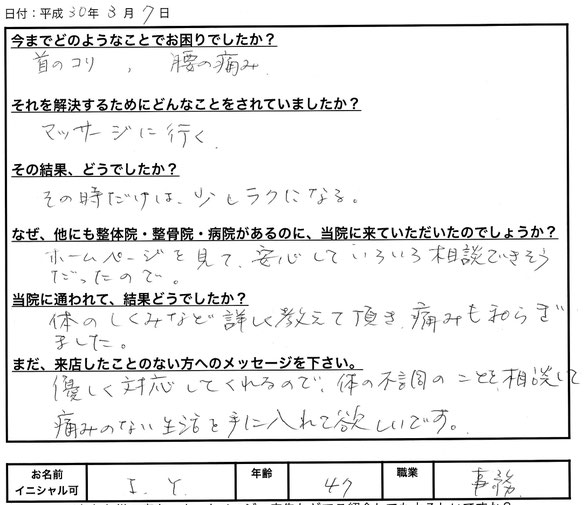 日付：平成 30年 3月 7日
今までどのようなことでお困りでしたか？
首のコリ 、 腰の痛み
それを解決するためにどんなことをされていましたか？
マッサージに行く
その結果、どうでしたか？
その時だけは、少しラクになる。
なぜ、他にも整体院・整骨院・病院があるのに、当院に来ていただいたのでしょうか？
ホームページを見て、安心していろいろ相談できそう
だったので。
当院に通われて、結果どうでしたか？
体のしくみなど詳しく教えて頂き、痛みも和らぎ
ました。
まだ、来店したことのない方へのメッセージを下さい。
優しく対応してくれるので、体の不調のことを相談して
痛みのない生活を手に入れて欲しいです。
お名前 イニシャル可 I. Y. 年齢 47 職業 事務